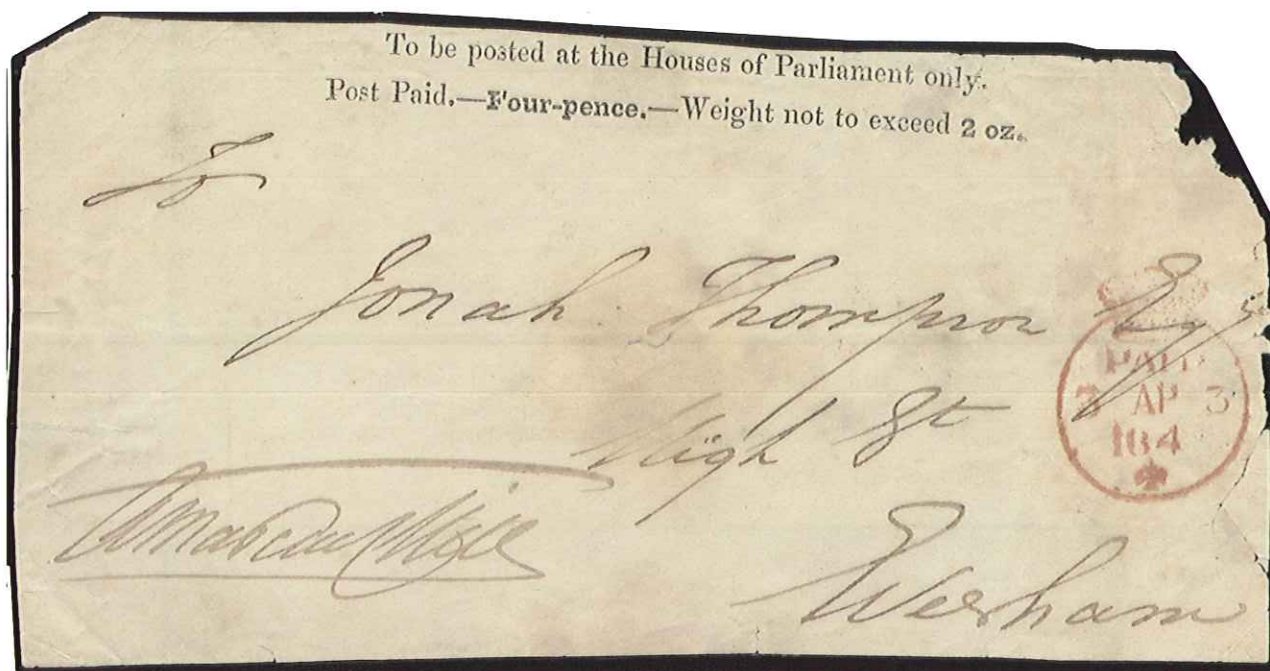 To be posted at the Houses of Parliament only.
Post Paid.—Four-pence.—Weight not to exceed 2 oz.
To
Jonah Thompson Esq
High St
Evesham
PAID
3 AP 3
184